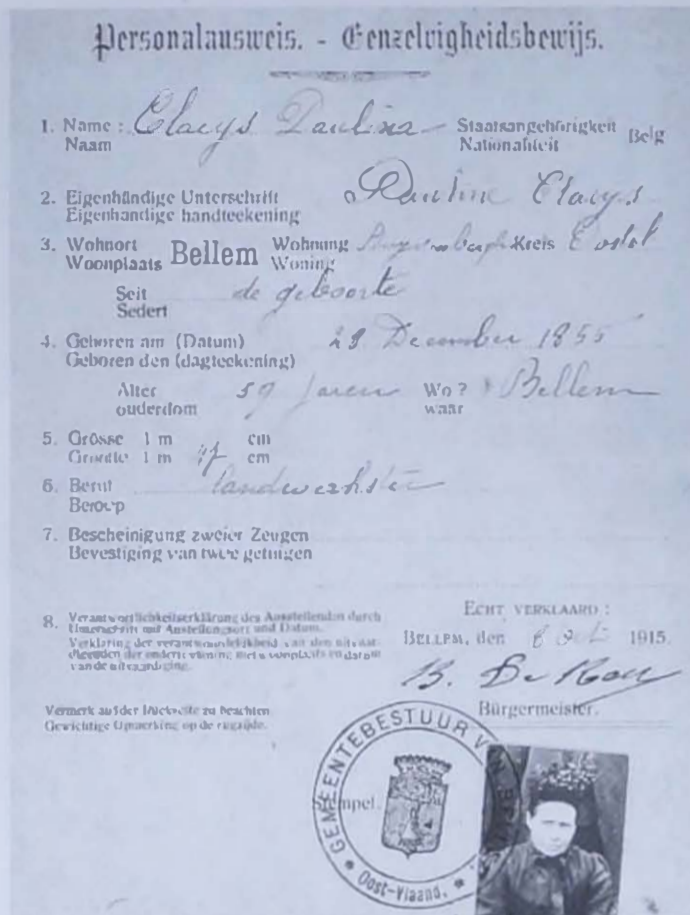 Personalausweis. - Eenzelvigheidsbewijs.
1. Name : Claeys Paulina Staatsangehörigkeit Belg
Naam Nationaliteit
2. Eigenhändige Unterschrift Pauline Claeys
Eigenhandige handteekening
3. Wohnort Bellem Wohnung Kreis Eecloo
Woonplaats Woning
Seit de geboorte
Sedert
4. Geboren am (Datum) December 1855
Geboren den (dagteekening)
Alter 59 jaren Wo? Bellem
ouderdom waar
5. Grösse 1 m cm
Grootte 1 m 47 cm
6. Beruf landwerkster
Beroep
7. Bescheinigung zweier Zeugen
Bevestiging van twee getuigen
8. Verantwortlichkeitserklärung des Ausstellenden durch
Unterschrift mit Austellungsort und Datum.
Verklaring der verantwoordelijkheid van den uitvaar-
digenden der onderteekening met woonplaats en datum
van de uitvaardiging.
ECHT VERKLAARD :
BELLEM, den 1915.
B. De
Bürgermeister.
Vermerk auf der Rückseite zu beachten
Gewichtige Opmerking op de rugzijde.
GEMEENTEBESTUUR
Stempel.
Oost-Vlaand.